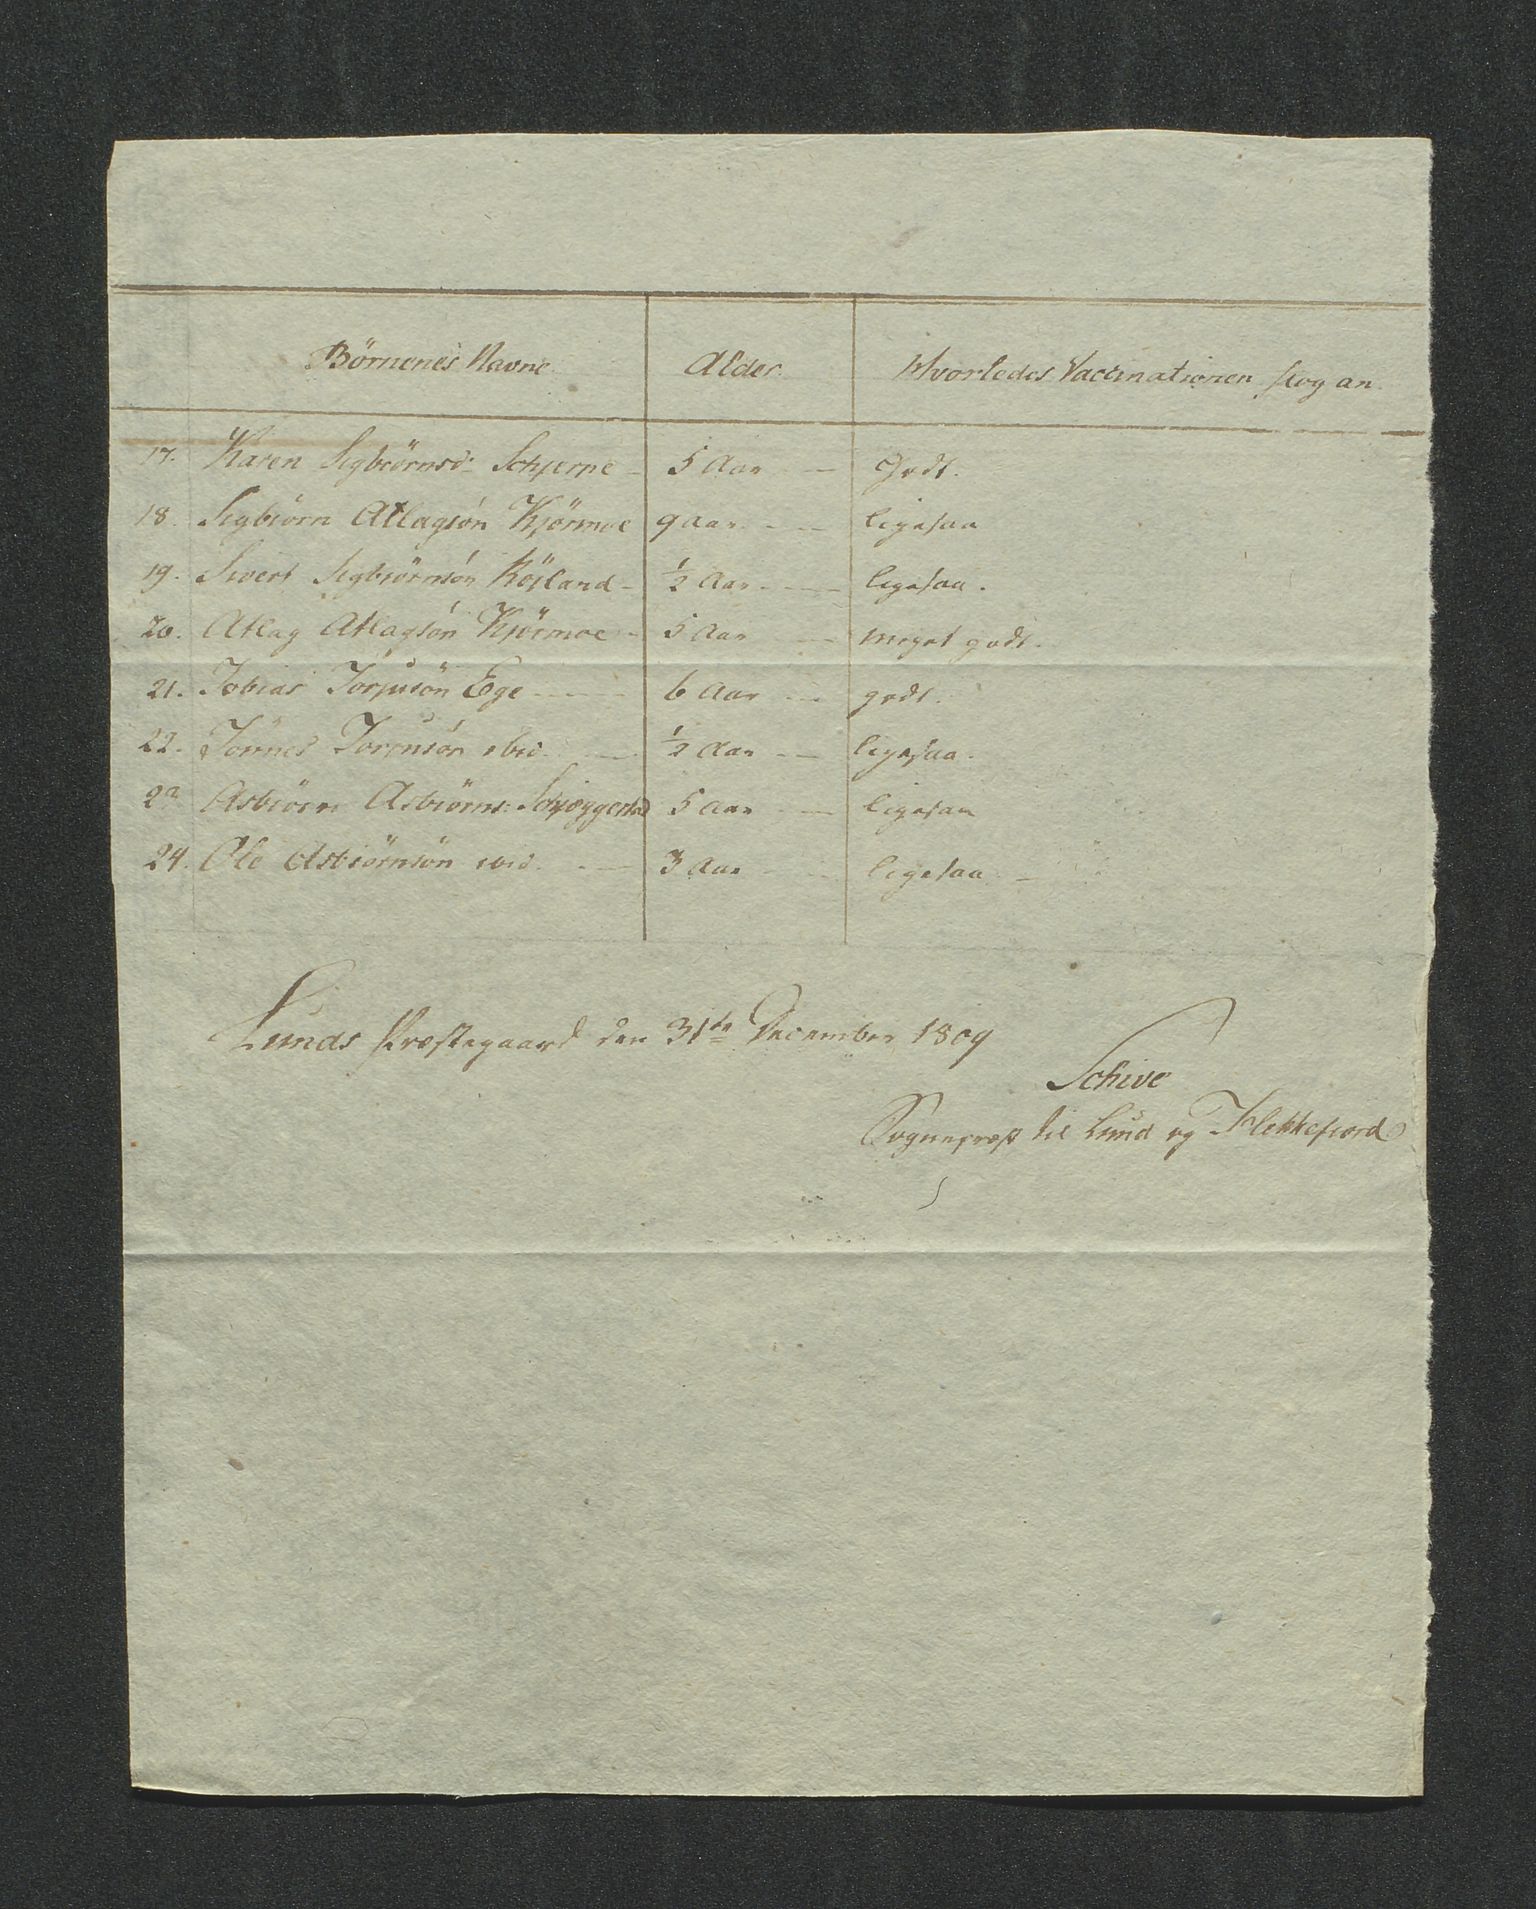 Börnenes Navne Alder Hvorledes Vaccinationen slog an
17. Karen Sigbiörnsd: Schjerpe 5 Aar Godt.
18. Sigbiörn Atlagsön Kjörmoe 9 aar ligesaa
19. Sivert Sigbiörnsön Röiland ½ Aar ligesaa.
20. Atlag Atlagsön Kjörmoe 5 Aar meget godt.
21. Tobias Torjusön Ege 6 Aar godt.
22. Tönnes Torjusön ibid. ½ Aar ligesaa.
23 Asbiörn Asbiörns: 5 aar ligesaa
24. Ole Asbiörnsön ibid. 3 Aar ligesaa
Lunds Præstegaard den 31te December 1809
Schive
Sognepræst til Lund og Flekkefiord